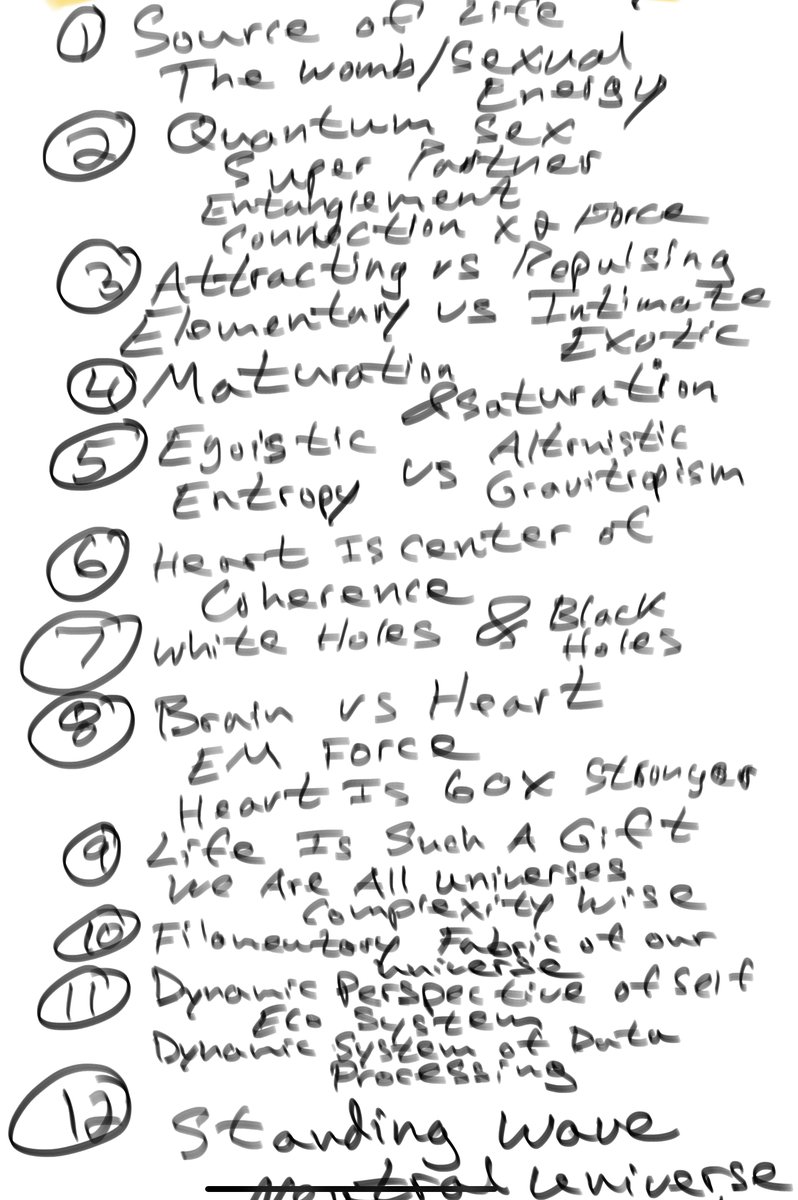 ① Source of Life
The womb/Sexual
Energy
② Quantum Sex
Super Partner
Entanglement
Connection x o Force
③ Attracting vs Repulsing
Elementary vs Intimate
Exotic
④ Maturation
& saturation
⑤ Egoistic vs Altruistic
Entropy Gravitropism
⑥ Heart Is center of
Coherence
⑦ White Holes & Black
Holes
⑧ Brain vs Heart
EM Force
Heart Is 60x Stronger
⑨ Life Is Such A Gift
We Are All universes
Complexity Wise
⑩ Filamentary Fabric of our
universe
⑪ Dynamic Perspective of Self
Eco System
Dynamic System of Data
Processing
⑫ Standing Wave
universe